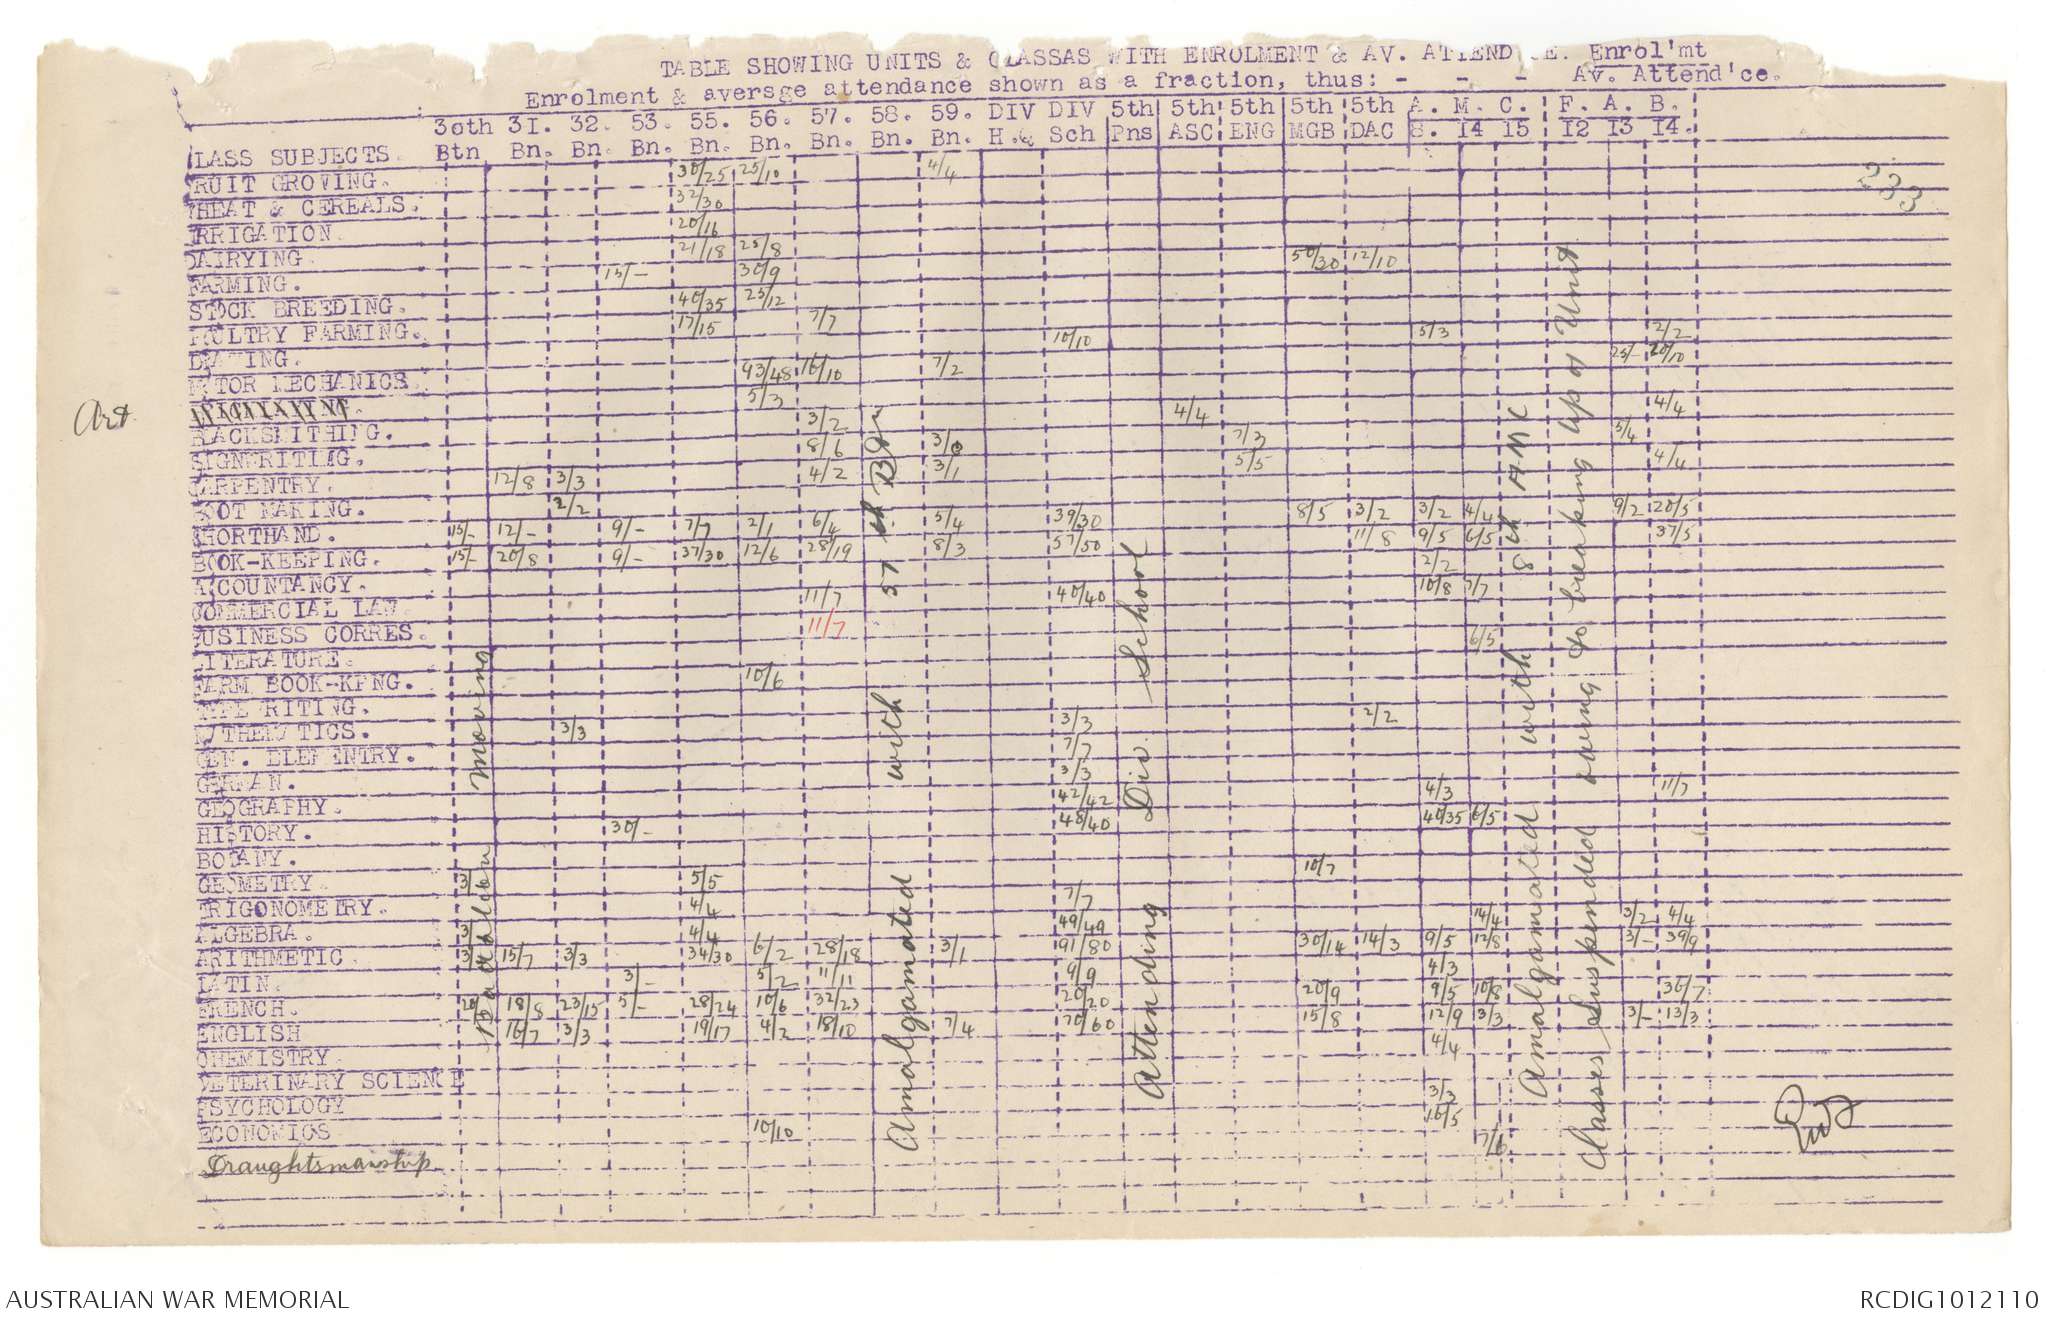 TABLE SHOWING UNITS & CLASSAS WITH ENROLMENT & AV. ATTEND CE. Enrol'mt
Enrolment & aversge attendance shown as a fraction, thus: - - - Av. Attend'ce.
3oth 31. 32. 53. 55. 56. 57. 58. 59. DIV DIV 5th 5th 5th 5th 5th A. M. C. F. A. B.
CLASS SUBJECTS. Btn Bn. Bn. Bn. Bn. Bn. Bn. Bn. Bn. H.& Sch Pns ASC ENG MGB DAC 8. I4 I5 I2 I3 I4.
FRUIT GROVING. 30/25 25/10 4/4
WHEAT & CEREALS. 32/30
IRRIGATION. 20/16
DAIRYING. 21/18 25/8 50/30 12/10
FARMING. 15/- 30/9
STOCK BREEDING. 40/35 25/12
POULTRY FARMING. 17/15 7/7 5/3 2/2
DRAWING. 10/10 25/- 20/10
MOTOR MECHANICS. 93/48 16/10 7/2
Art 5/3 4/4 4/4
BLACKSMITHING. 3/2 7/3 5/4
SIGNWRITING. 8/6 3/0 5/5 4/4
CARPENTRY. 12/8 3/3 4/2 3/1
BOOT MAKING. 2/2 8/5 3/2 3/2 4/4 9/2 20/5
SHORTHAND. 15/- 12/- 9/- 7/7 2/1 6/4 5/4 39/30 11/8 9/5 6/5 37/5
BOOK-KEEPING. 15/- 20/8 9/- 37/30 12/6 28/19 8/3 57/50 2/2
ACCOUNTANCY. 10/8 7/7
COMMERCIAL LAW. 11/7 40/40
BUSINESS CORRES. 11/7 6/5
LITERATURE.
FARM BOOK-KPNG. 10/6
TYPE RITING. 2/2
MATHEMATICS. 3/3 3/3
GEN. ELEMENTRY. 7/7
GERMAN. 3/3 4/3 11/7
GEOGRAPHY. 42/42 40/35 6/5
HISTORY. 30/- 48/40
BOTANY.
GEOMETRY. 3/ 5/5 10/7
TRIGONOMETRY. 4/4 7/7 14/4 3/2 4/4
ALGEBRA. 3/ 4/4 49/49 9/5 12/8 3/- 39/9
ARITHMETIC. 3/ 15/7 3/3 34/30 6/2 28/18 3/1 91/80 30/14 14/3
LATIN. 3/- 5/2 11/11 9/9 4/3
FRENCH. 20/ 18/8 23/15 5/- 28/24 10/6 32/23 20/20 20/9 9/5 10/8 36/7
ENGLISH 16/7 3/3 19/17 4/2 18/10 7/4 70/60 15/8 12/9 3/3 3/- 13/3
CHEMISTRY. 4/4
VETERINARY SCIENCE
PSYCHOLOGY 3/3
ECONOMICS 10/10 16/5
Draughtsmanship 7/6
Battalion moving
Amalgamated with 57 th Btn
Attending Div. School
Amalgamated with 8 th AMC
Classes Suspended owing to breaking up of Unit
233
AUSTRALIAN WAR MEMORIAL
RCDIG1012110